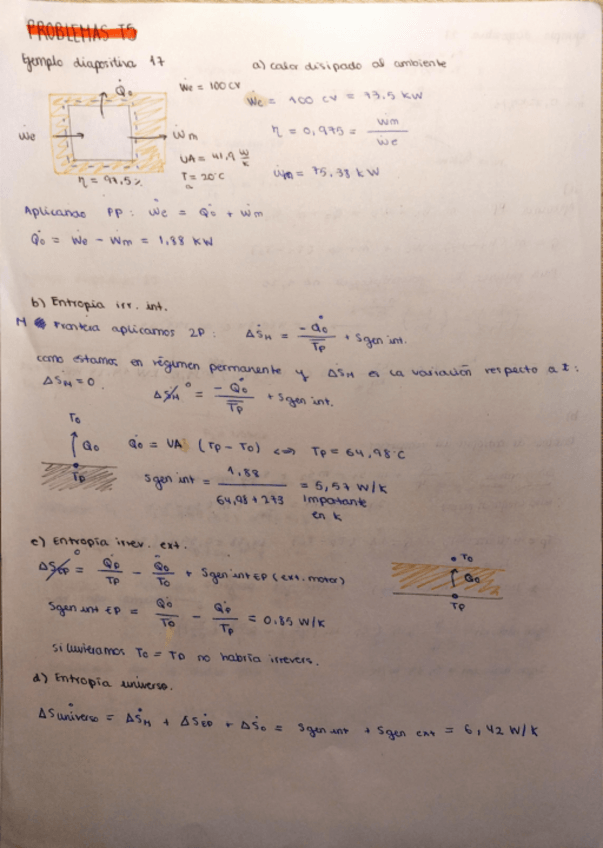 PROBLEMAS T5
Ejemplo diapositiva 17
a) calor disipado al ambiente
Q̇o
Ẇe = 100 CV
Ẇe = 100 CV = 73,5 KW
Ẇe
Ẇm
η = 0,975 = Ẇm / Ẇe
UA = 41,9 W/K
T = 20°C
η = 97,5%
Ẇm = 75,38 KW
Aplicando PP: Ẇe = Q̇o + Ẇm
Q̇o = Ẇe - Ẇm = 1,88 KW
b) Entropia irr. int.
Frontera aplicamos 2P: ΔṠM = -Q̇o / Tp + Sgen int.
como estamos en régimen permanente y ΔṠM es la variación respecto a t:
ΔṠM = 0.
ΔṠM⁰ = -Q̇o / Tp + Sgen int.
To
Q̇o
Tp
Q̇o = UA (Tp - To) <=> Tp = 64,98°C
Sgen int = 1,88 / 64,98 + 273 = 5,57 W/K
importante
en K
c) Entropia irrev. ext.
ΔṠEP⁰ = Q̇p / Tp - Q̇o / To + Sgen int EP (ext. motor)
To
Q̇o
Tp
Sgen int EP = Q̇o / To - Q̇p / Tp = 0,85 W/K
Si tuvieramos To = Tp no habría irrevers.
d) Entropia universo.
ΔSuniverso = ΔṠM + ΔṠEP + ΔṠo = Sgen int + Sgen ext = 6,42 W/K